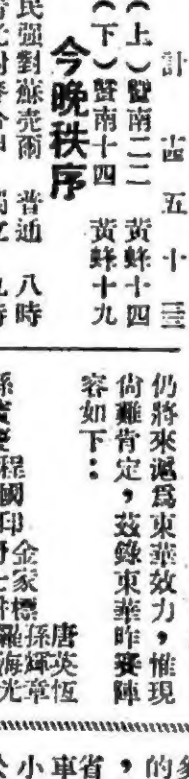 計 五十三
（上）暨南二二 黃蜂十四
（下）暨南十四 黃蜂十九
今晚秩序
民强對蘇堯爾 普通 八時
仍將來滬爲東華效力，惟現
尙難肯定，茲錄東華昨賽陣
容如下：
唐英恆
金家標 孫輝章
程國印 羅海光
的
，
省
車
小